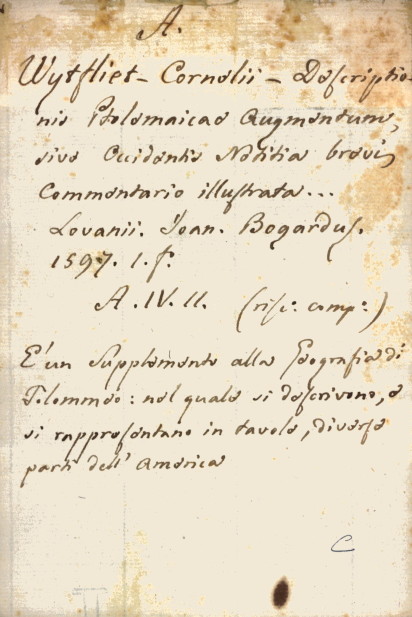 A.
Wytfliet - Cornelii - Descriptio-
nis Ptolemaicae Augmentum,
sive Occidentis Notitia brevi
Commentario illustrata...
Lovanii. Ioan. Bogardus.
1597. 1. f.
A. IV. II. (risc: comp:)
E' un Supplemento alla Geografia di
Tolommeo: nel quale si descrivono, e
si rappresentano in tavole, diverse
parti dell' America
C